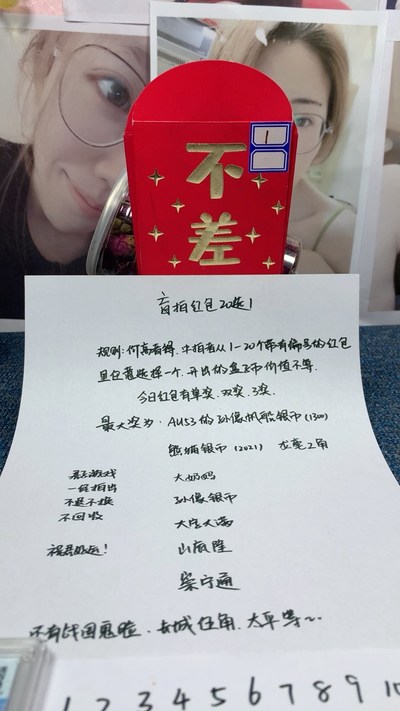 1
不
差
盲拍红包20选1
规则:价高者得.中拍者从1-20个带有编号的红包
里任意选择一个.开出的盒子币价值不等.
今日红包有单奖.双奖.3奖.
最大奖为:AU53的孙像帆船银币(1300)
熊猫银币(2021) 龙毫2角
娱乐游戏 大奶妈
一经拍出 孙像银币
不退不换 大字大满
不回收 山底隆
祝君好运! 梁宁通
还有战国鬼脸.长城伍角.太平等~
1 2 3 4 5 6 7 8 9 10